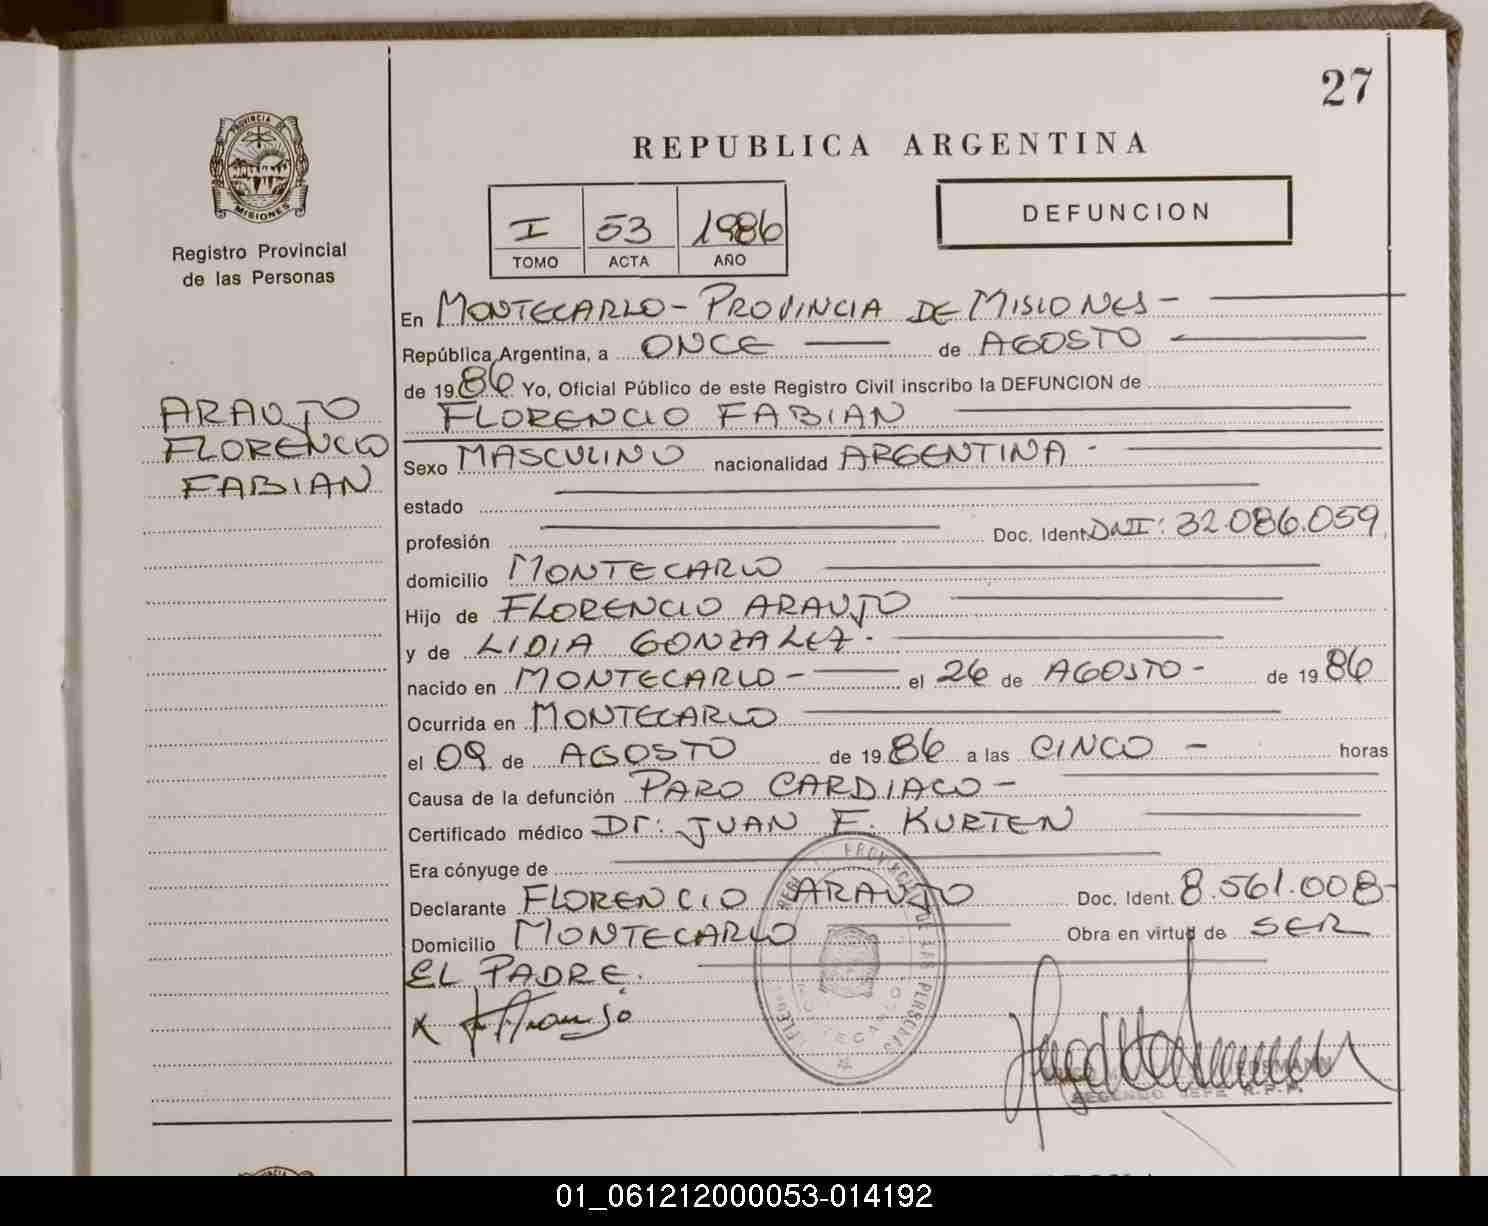 27
PROVINCIA DE
MISIONES
Registro Provincial
de las Personas
REPUBLICA ARGENTINA
I 53 1986
TOMO ACTA AÑO
DEFUNCION
ARAUJO
FLORENCIO
FABIAN
En MONTECARLO - PROVINCIA DE MISIONES -
República Argentina, a ONCE de AGOSTO
de 1986 Yo, Oficial Público de este Registro Civil inscribo la DEFUNCION de
FLORENCIO FABIAN
Sexo MASCULINO nacionalidad ARGENTINA -
estado
profesión Doc. Ident. DNI: 32.086.059
domicilio MONTECARLO
Hijo de FLORENCIO ARAUJO
y de LIDIA GONZALEZ.
nacido en MONTECARLO - el 26 de AGOSTO - de 1986
Ocurrida en MONTECARLO
el 09 de AGOSTO de 1986 a las CINCO - horas
Causa de la defunción PARO CARDIACO -
Certificado médico Dr: JUAN E. KURTEN
Era cónyuge de
Declarante FLORENCIO ARAUJO Doc. Ident. 8.561.008-
Domicilio MONTECARLO Obra en virtud de SER
EL PADRE.
x F Araujo
PROVINCIAL DE LAS PERSONAS
MONTECARLO
SEGUNDO JEFE R.P.P.
01_061212000053-014192